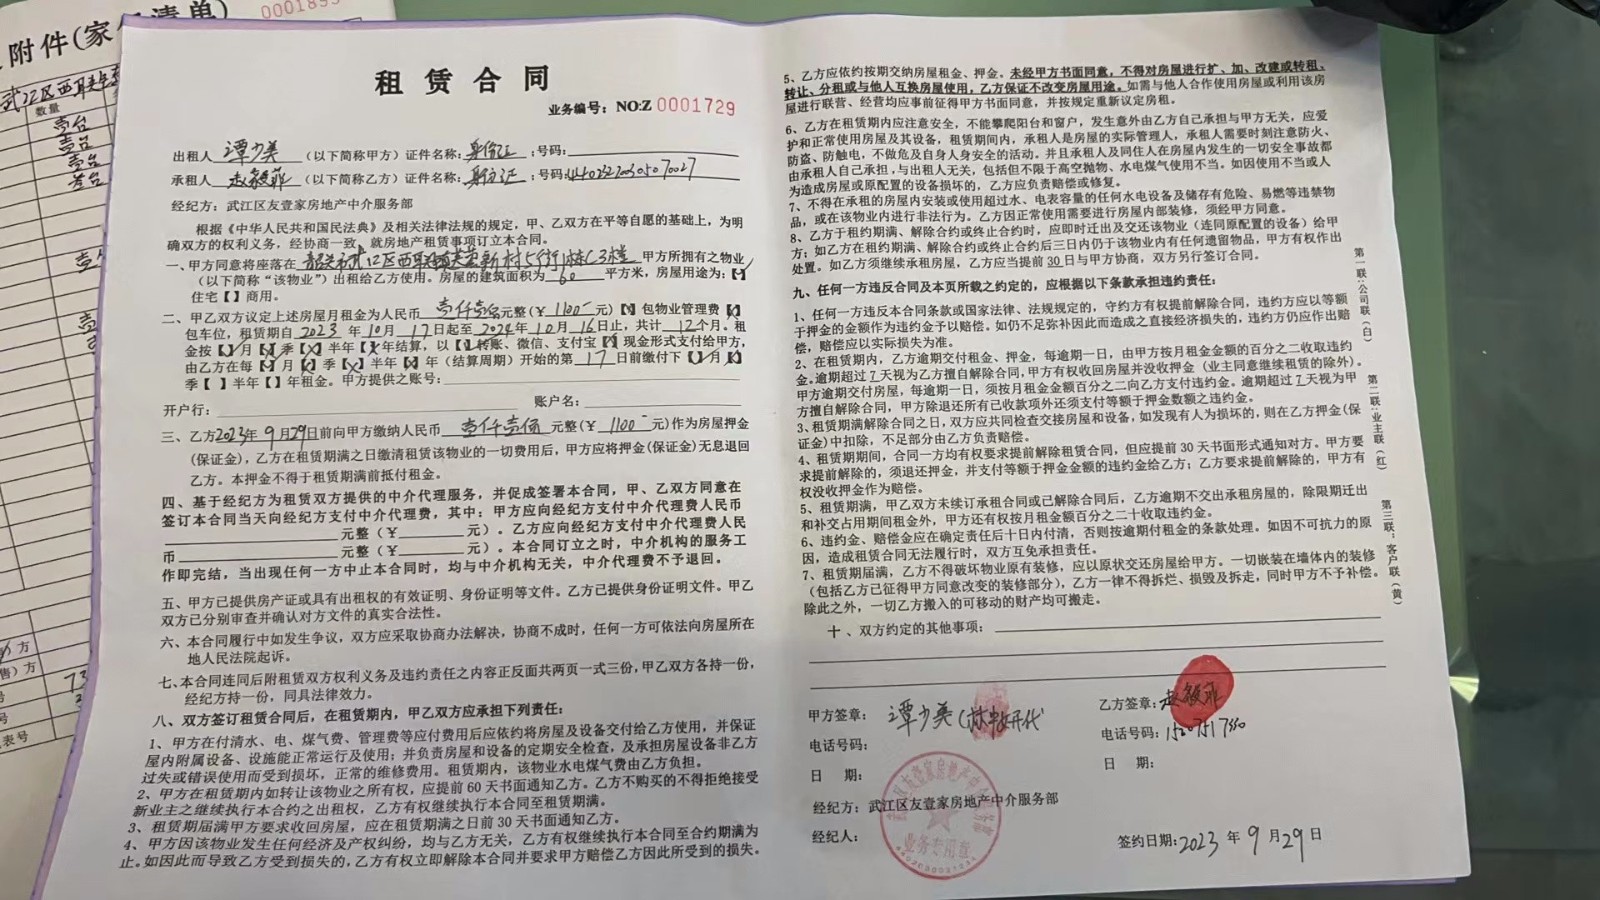 附件(家
清单)
武江区西联
数量
壹台
壹台
壹台
壹台
租赁合同
业务编号：NO:Z 0001729
出租人 谭少美 (以下简称甲方) 证件名称: 身份证 ;号码:
承租人 (以下简称乙方) 证件名称: 身份证 ;号码:
经纪方：武江区友壹家房地产中介服务部
根据《中华人民共和国民法典》及相关法律法规的规定，甲、乙双方在平等自愿的基础上，为明
确双方的权利义务，经协商一致，就房地产租赁事项订立本合同。
一、甲方同意将座落在 韶关市武江区西联镇 新村5街1栋C3楼 甲方所拥有之物业
(以下简称“该物业”) 出租给乙方使用。房屋的建筑面积为 60 平方米，房屋用途为:【】
住宅【】商用。
二、甲乙双方议定上述房屋月租金为人民币 壹仟壹佰 元整(￥1100-元)【】包物业管理费【】
包车位，租赁期自 2023 年 10 月 17 日起至 2024 年 10 月 16 日止，共计 12 个月。租
金按【】月【】季【】半年【】年结算，以【】转账、微信、支付宝【】现金形式支付给甲方，
由乙方在每【】月【】季【】半年【】年 (结算周期) 开始的第 17 日前缴付下【】月【】
季【】半年【】年租金。甲方提供之账号:
开户行: 账户名:
三、乙方2023年9月29日前向甲方缴纳人民币 壹仟壹佰 元整(￥1100-元)作为房屋押金
(保证金)，乙方在租赁期满之日缴清租赁该物业的一切费用后，甲方应将押金(保证金)无息退回
乙方。本押金不得于租赁期满前抵付租金。
四、基于经纪方为租赁双方提供的中介代理服务，并促成签署本合同，甲、乙双方同意在
签订本合同当天向经纪方支付中介代理费，其中：甲方应向经纪方支付中介代理费人民币
元整(￥ 元)。乙方应向经纪方支付中介代理费人民
币 元整(￥ 元)。本合同订立之时，中介机构的服务工
作即完结，当出现任何一方中止本合同时，均与中介机构无关，中介代理费不予退回。
五、甲方已提供房产证或具有出租权的有效证明、身份证明等文件。乙方已提供身份证明文件。甲乙
双方已分别审查并确认对方文件的真实合法性。
六、本合同履行中如发生争议，双方应采取协商办法解决，协商不成时，任何一方可依法向房屋所在
地人民法院起诉。
七、本合同连同后附租赁双方权利义务及违约责任之内容正反面共两页一式三份，甲乙双方各持一份，
经纪方持一份，同具法律效力。
八、双方签订租赁合同后，在租赁期内，甲乙双方应承担下列责任：
1、甲方在付清水、电、煤气费、管理费等应付费用后应依约将房屋及设备交付给乙方使用，并保证
屋内附属设备、设施能正常运行及使用；并负责房屋和设备的定期安全检查，及承担房屋设备非乙方
过失或错误使用而受到损坏，正常的维修费用。租赁期内，该物业水电煤气费由乙方负担。
2、甲方在租赁期内如转让该物业之所有权，应提前60天书面通知乙方。乙方不购买的不得拒绝接受
新业主之继续执行本合约之出租权，乙方有权继续执行本合同至租赁期满。
3、租赁期届满甲方要求收回房屋，应在租赁期满之日前30天书面通知乙方。
4、甲方因该物业发生任何经济及产权纠纷，均与乙方无关，乙方有权继续执行本合同至合约期满为
止。如因此而导致乙方受到损失的，乙方有权立即解除本合同并要求甲方赔偿乙方因此所受到的损失。
5、乙方应依约按期交纳房屋租金、押金。未经甲方书面同意，不得对房屋进行扩、加、改建或转租、
转让、分租或与他人互换房屋使用，乙方保证不改变房屋用途。如需与他人合作使用房屋或利用该房
屋进行联营、经营均应事前征得甲方书面同意，并按规定重新议定房租。
6、乙方在租赁期内应注意安全，不能攀爬阳台和窗户，发生意外由乙方自己承担与甲方无关，应爱
护和正常使用房屋及其设备，租赁期间内，承租人是房屋的实际管理人，承租人需要时刻注意防火、
防盗、防触电，不做危及自身人身安全的活动。并且承租人及同住人在房屋内发生的一切安全事故都
由承租人自己承担，与出租人无关，包括但不限于高空抛物、水电煤气使用不当。如因使用不当或人
为造成房屋或原配置的设备损坏的，乙方应负责赔偿或修复。
7、不得在承租的房屋内安装或使用超过水、电表容量的任何水电设备及储存有危险、易燃等违禁物
品，或在该物业内进行非法行为。乙方因正常使用需要进行房屋内部装修，须经甲方同意。
8、乙方于租约期满、解除合约或终止合约时，应即时迁出及交还该物业 (连同原配置的设备) 给甲
方；如乙方在租约期满、解除合约或终止合约后三日内仍于该物业内有任何遗留物品，甲方有权作出
处置。如乙方须继续承租房屋，乙方应当提前30日与甲方协商，双方另行签订合同。
九、任何一方违反合同及本页所载之约定的，应根据以下条款承担违约责任:
1、任何一方违反本合同条款或国家法律、法规规定的，守约方有权提前解除合同，违约方应以等额
于押金的金额作为违约金予以赔偿。如仍不足弥补因此而造成之直接经济损失的，违约方仍应作出赔
偿，赔偿应以实际损失为准。
2、在租赁期内，乙方逾期交付租金、押金，每逾期一日，由甲方按月租金金额的百分之二收取违约
金。逾期超过7天视为乙方擅自解除合同，甲方有权收回房屋并没收押金 (业主同意继续租赁的除外)。
甲方逾期交付房屋，每逾期一日，须按月租金金额百分之二向乙方支付违约金。逾期超过7天视为甲
方擅自解除合同，甲方除退还所有已收款项外还须支付等额于押金数额之违约金。
3、租赁期满解除合同之日，双方应共同检查交接房屋和设备，如发现有人为损坏的，则在乙方押金(保
证金)中扣除，不足部分由乙方负责赔偿。
4、租赁期期间，合同一方均有权要求提前解除租赁合同，但应提前30天书面形式通知对方。甲方要
求提前解除的，须退还押金，并支付等额于押金金额的违约金给乙方；乙方要求提前解除的，甲方有
权没收押金作为赔偿。
5、租赁期满，甲乙双方未续订承租合同或已解除合同后，乙方逾期不交出承租房屋的，除限期迁出
和补交占用期间租金外，甲方还有权按月租金额百分之二十收取违约金。
6、违约金、赔偿金应在确定责任后十日内付清，否则按逾期付租金的条款处理。如因不可抗力的原
因，造成租赁合同无法履行时，双方互免承担责任。
7、租赁期届满，乙方不得破坏物业原有装修，应以原状交还房屋给甲方。一切嵌装在墙体内的装修
(包括乙方已征得甲方同意改变的装修部分)，乙方一律不得拆烂、损毁及拆走，同时甲方不予补偿。
除此之外，一切乙方搬入的可移动的财产均可搬走。
十、双方约定的其他事项:
甲方签章： 谭少美
乙方签章:
电话号码：
电话号码:
日 期：
日 期：
经纪方：武江区友壹家房地产中介服务部
经纪人：
签约日期:2023 年 9 月 29 日
业务专用章
第一联：公司联（白）
第二联：业主联（红）
第三联：客户联（黄）